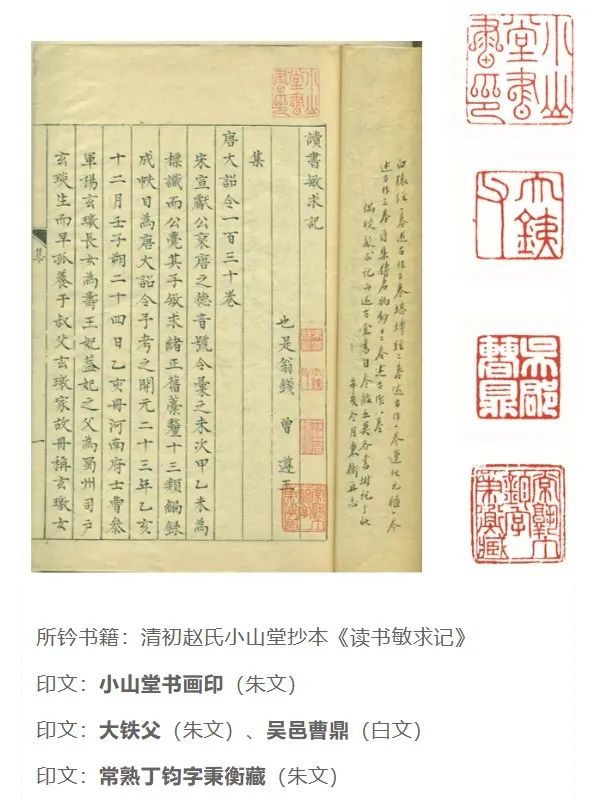 讀書敏求記
也是翁錢 曾 遵王
集
唐大詔令一百三十卷
宋宣獻公裒唐之德音號令彙之未次甲乙未為
標識而公薨其子敏求緒正舊藁釐十三類編錄
成帙目為唐大詔令予考之開元二十三年乙亥
十二月壬子朔二十四日乙亥冊河南府士曹參
軍楊玄璬長女為壽王妃蓋妃之父為蜀州司戶
玄琰生而早孤養于叔父玄璬家故冊稱玄璬女
集
一
小山堂書畫印
大鐵父
吳邑曹鼎
常熟丁鈞字秉衡藏
所钤书籍：清初赵氏小山堂抄本《读书敏求记》
印文：小山堂书画印（朱文）
印文：大铁父（朱文）、吴邑曹鼎（白文）
印文：常熟丁钧字秉衡藏（朱文）